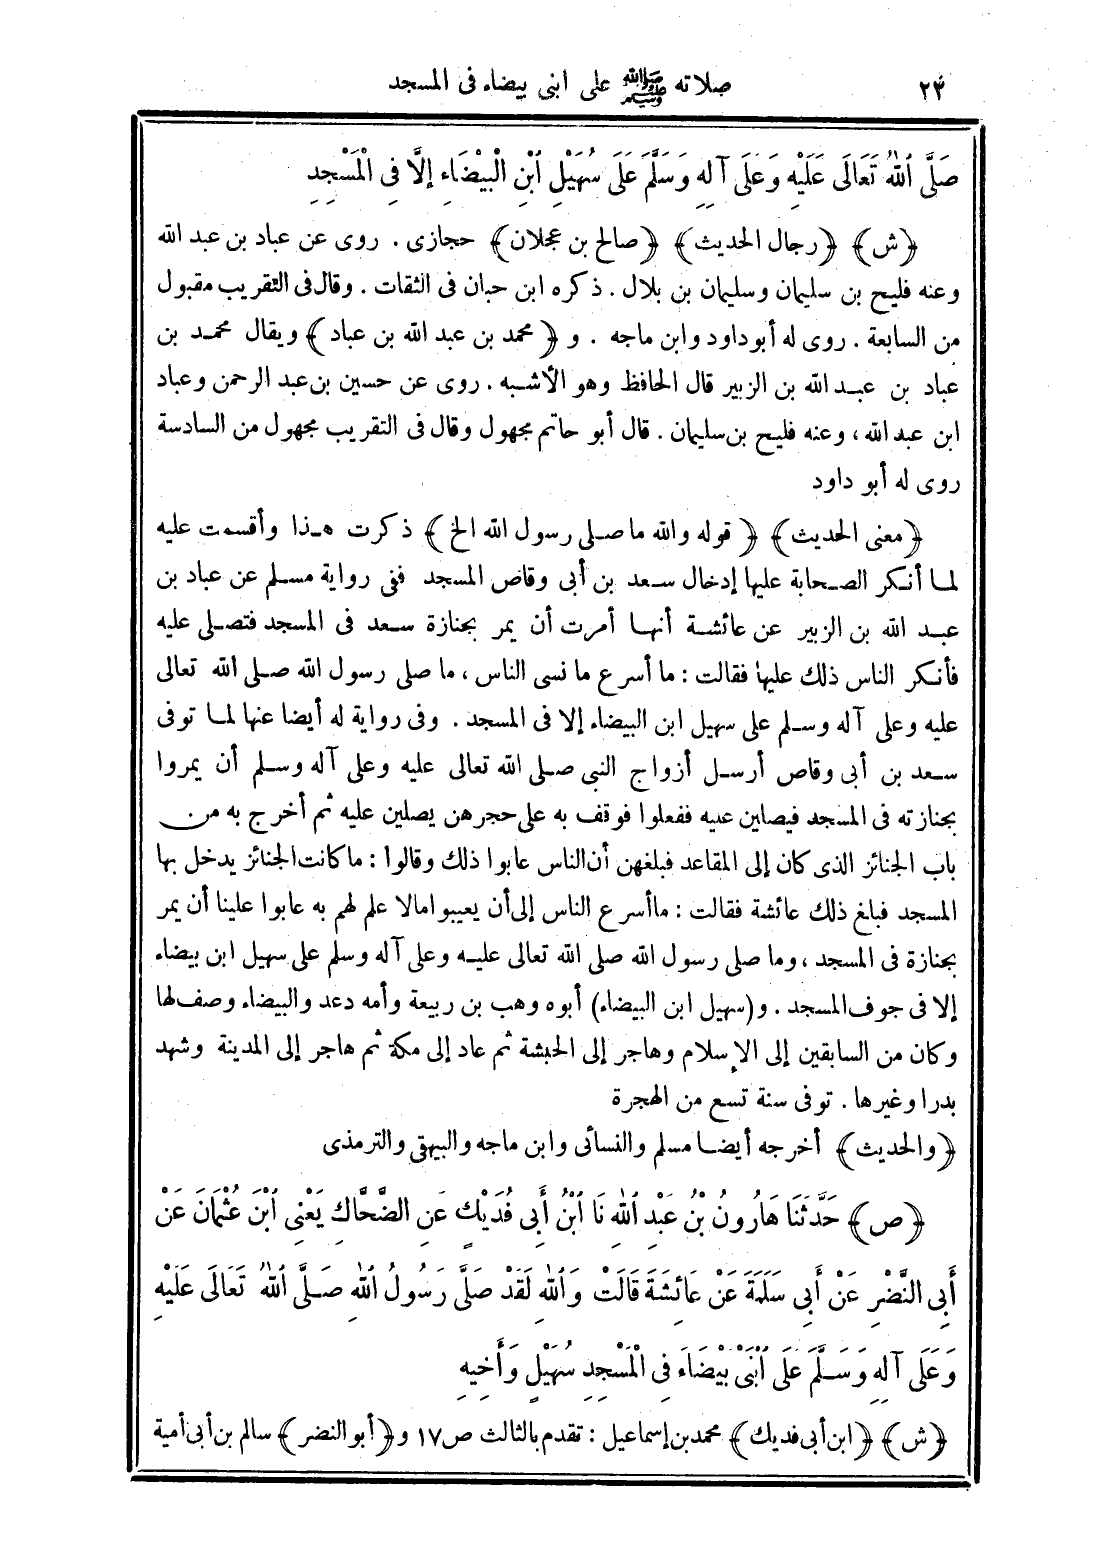 ٢٣ صلاته ﷺ على ابنى بيضاء فى المسجد
صَلَّى ٱللهُ تَعَالَى عَلَيْهِ وَعَلَى آلِهِ وَسَلَّمَ عَلَى سُهَيْلِ ٱبْنِ الْبَيْضَاءِ إلَّا فِى الْمَسْجِدِ
﴿ش﴾ ﴿رجال الحديث﴾ ﴿صالح بن عجلان﴾ حجازى . روى عن عباد بن عبد الله
وعنه فليح بن سليمان وسليمان بن بلال . ذكره ابن حبان فى الثقات . وقال فى التقريب مقبول
من السابعة . روى له أبو داود وابن ماجه . و ﴿محمد بن عبد الله بن عباد﴾ ويقال محمد بن
عباد بن عبد الله بن الزبير قال الحافظ وهو الأشبه . روى عن حسين بن عبد الرحمن وعباد
ابن عبد الله ، وعنه فليح بن سليمان . قال أبو حاتم مجهول وقال فى التقريب مجهول من السادسة
روى له أبو داود
﴿معنى الحديث﴾ ﴿قوله والله ما صلى رسول الله الخ﴾ ذكرت هذا وأقسمت عليه
لما أنكر الصحابة عليها إدخال سعد بن أبى وقاص المسجد ففى رواية مسلم عن عباد بن
عبد الله بن الزبير عن عائشة أنها أمرت أن يمر بجنازة سعد فى المسجد فتصلى عليه
فأنكر الناس ذلك عليها فقالت : ما أسرع ما نسى الناس ، ما صلى رسول الله صلى الله تعالى
عليه وعلى آله وسلم على سهيل ابن البيضاء إلا فى المسجد . وفى رواية له أيضا عنها لما توفى
سعد بن أبى وقاص أرسل أزواج النبى صلى الله تعالى عليه وعلى آله وسلم أن يمروا
بجنازته فى المسجد فيصلين عليه ففعلوا فوقف به على حجرهن يصلين عليه ثم أخرج به من
باب الجنائز الذى كان إلى المقاعد فبلغهن أن الناس عابوا ذلك وقالوا : ما كانت الجنائز يدخل بها
المسجد فبلغ ذلك عائشة فقالت : ما أسرع الناس إلى أن يعيبوا مالا علم لهم به عابوا علينا أن يمر
بجنازة فى المسجد ، وما صلى رسول الله صلى الله تعالى عليه وعلى آله وسلم على سهيل ابن بيضاء
إلا فى جوف المسجد . و(سهيل ابن البيضاء) أبوه وهب بن ربيعة وأمه دعد والبيضاء وصف لها
وكان من السابقين إلى الإسلام وهاجر إلى الحبشة ثم عاد إلى مكة ثم هاجر إلى المدينة وشهد
بدرا وغيرها . توفى سنة تسع من الهجرة
﴿والحديث﴾ أخرجه أيضا مسلم والنسائى وابن ماجه والبيهقى والترمذى
﴿ص﴾ حَدَّثَنَا هَارُونُ بْنُ عَبْدِ ٱللهِ نَا ٱبْنُ أَبِى فُدَيْكٍ عَنِ الضَّحَّاكِ يَعْنِى ٱبْنَ عُثْمَانَ عَنْ
أَبِى النَّضْرِ عَنْ أَبِى سَلَمَةَ عَنْ عَائِشَةَ قَالَتْ وَٱللهِ لَقَدْ صَلَّى رَسُولُ ٱللهِ صَلَّى ٱللهُ تَعَالَى عَلَيْهِ
وَعَلَى آلِهِ وَسَلَّمَ عَلَى ٱبْنَىْ بَيْضَاءَ فِى الْمَسْجِدِ سُهَيْلٍ وَأَخِيهِ
﴿ش﴾ ﴿ابن أبى فديك﴾ محمد بن إسماعيل : تقدم بالثالث ص ١٧ و﴿أبو النضر﴾ سالم بن أبى أمية